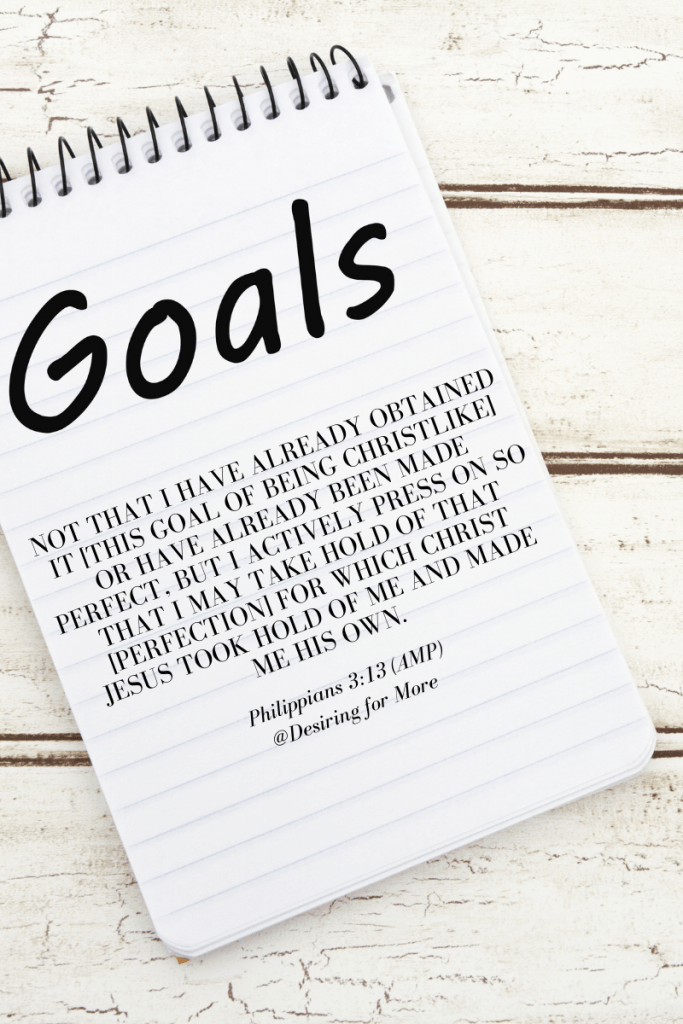 Goals
NOT THAT I HAVE ALREADY OBTAINED
IT [THIS GOAL OF BEING CHRISTLIKE]
OR HAVE ALREADY BEEN MADE
PERFECT, BUT I ACTIVELY PRESS ON SO
THAT I MAY TAKE HOLD OF THAT
[PERFECTION] FOR WHICH CHRIST
JESUS TOOK HOLD OF ME AND MADE
ME HIS OWN.
Philippians 3:13 (AMP)
@Desiring for More